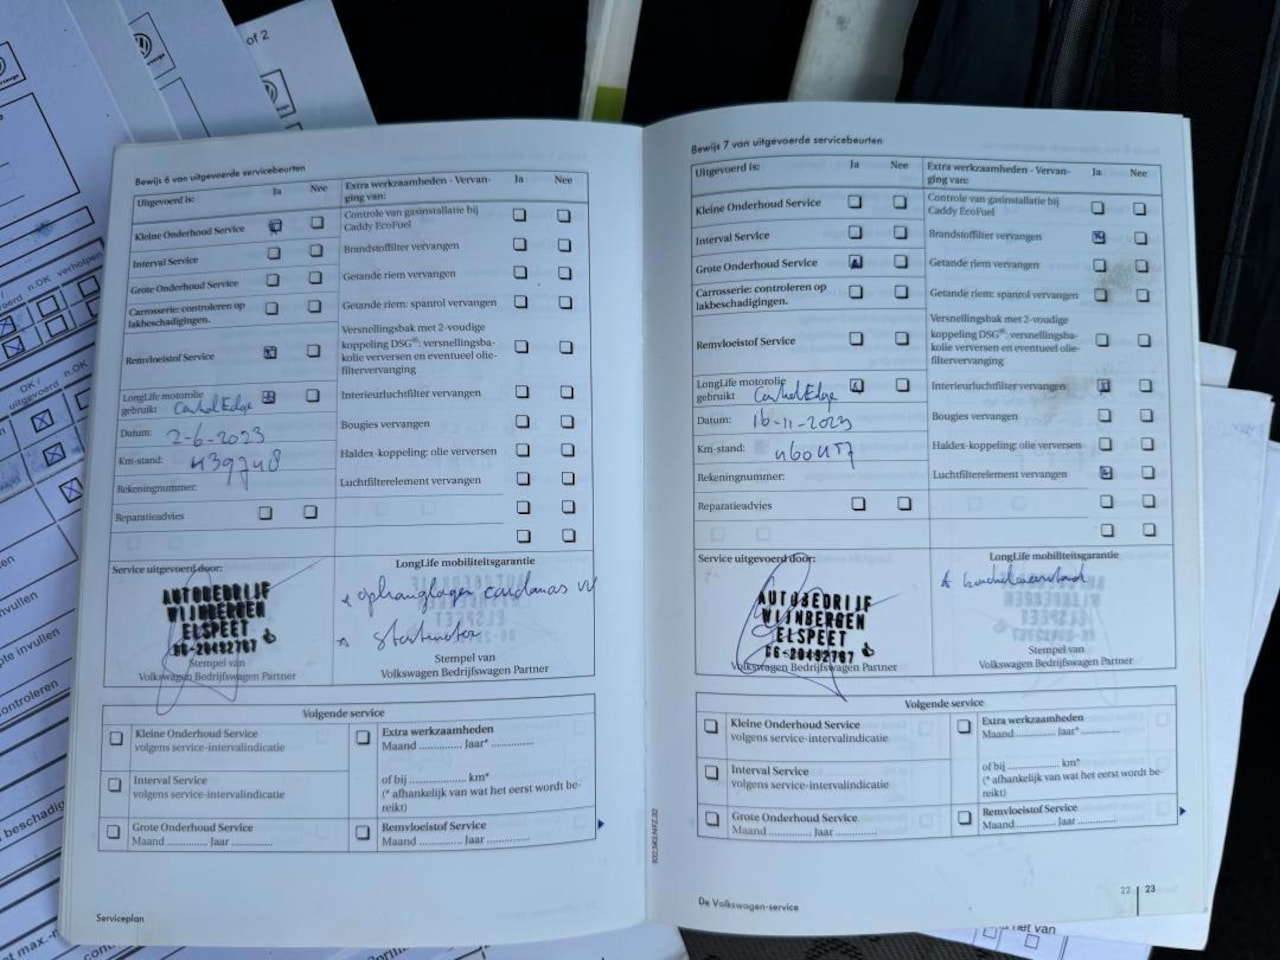 of 2
Bewijs 6 van uitgevoerde servicebeurten
Uitgevoerd is:
Ja
Nee
Kleine Onderhoud Service
Interval Service
Grote Onderhoud Service
Carrosserie: controleren op
lakbeschadigingen.
Remvloeistof Service
LongLife motorolie
gebruikt: Castrol Edge
Datum: 2-6-2023
Km-stand: 439748
Rekeningnummer:
Reparatieadvies
Extra werkzaamheden - Vervan-
ging van:
Ja
Nee
Controle van gasinstallatie bij
Caddy EcoFuel
Brandstoffilter vervangen
Getande riem vervangen
Getande riem: spanrol vervangen
Versnellingsbak met 2-voudige
koppeling DSG®: versnellingsba-
kolie verversen en eventueel olie-
filtervervanging
Interieurluchtfilter vervangen
Bougies vervangen
Haldex-koppeling: olie verversen
Luchtfilterelement vervangen
Service uitgevoerd door:
AUTOBEDRIJF
WIJNBERGEN
ELSPEET
06-20492767
Stempel van
Volkswagen Bedrijfswagen Partner
LongLife mobiliteitsgarantie
* ophanglager cardanas VV
* Startmotor
Stempel van
Volkswagen Bedrijfswagen Partner
Volgende service
Kleine Onderhoud Service
volgens service-intervalindicatie
Interval Service
volgens service-intervalindicatie
Grote Onderhoud Service
Maand ............. Jaar .............
Extra werkzaamheden
Maand ............. Jaar* .............
of bij .................. km*
(* afhankelijk van wat het eerst wordt be-
reikt)
Remvloeistof Service
Maand ............. Jaar .............
Serviceplan
Bewijs 7 van uitgevoerde servicebeurten
Uitgevoerd is:
Ja
Nee
Kleine Onderhoud Service
Interval Service
Grote Onderhoud Service
Carrosserie: controleren op
lakbeschadigingen.
Remvloeistof Service
LongLife motorolie
gebruikt: Castrol Edge
Datum: 16-11-2023
Km-stand: 460457
Rekeningnummer:
Reparatieadvies
Extra werkzaamheden - Vervan-
ging van:
Ja
Nee
Controle van gasinstallatie bij
Caddy EcoFuel
Brandstoffilter vervangen
Getande riem vervangen
Getande riem: spanrol vervangen
Versnellingsbak met 2-voudige
koppeling DSG®: versnellingsba-
kolie verversen en eventueel olie-
filtervervanging
Interieurluchtfilter vervangen
Bougies vervangen
Haldex-koppeling: olie verversen
Luchtfilterelement vervangen
Service uitgevoerd door:
AUTOBEDRIJF
WIJNBERGEN
ELSPEET
06-20492767
Stempel van
Volkswagen Bedrijfswagen Partner
LongLife mobiliteitsgarantie
* kachelweerstand
Stempel van
Volkswagen Bedrijfswagen Partner
Volgende service
Kleine Onderhoud Service
volgens service-intervalindicatie
Interval Service
volgens service-intervalindicatie
Grote Onderhoud Service
Maand ............. Jaar .............
Extra werkzaamheden
Maand ............. Jaar* .............
of bij .................. km*
(* afhankelijk van wat het eerst wordt be-
reikt)
Remvloeistof Service
Maand ............. Jaar .............
De Volkswagen-service
22 | 23